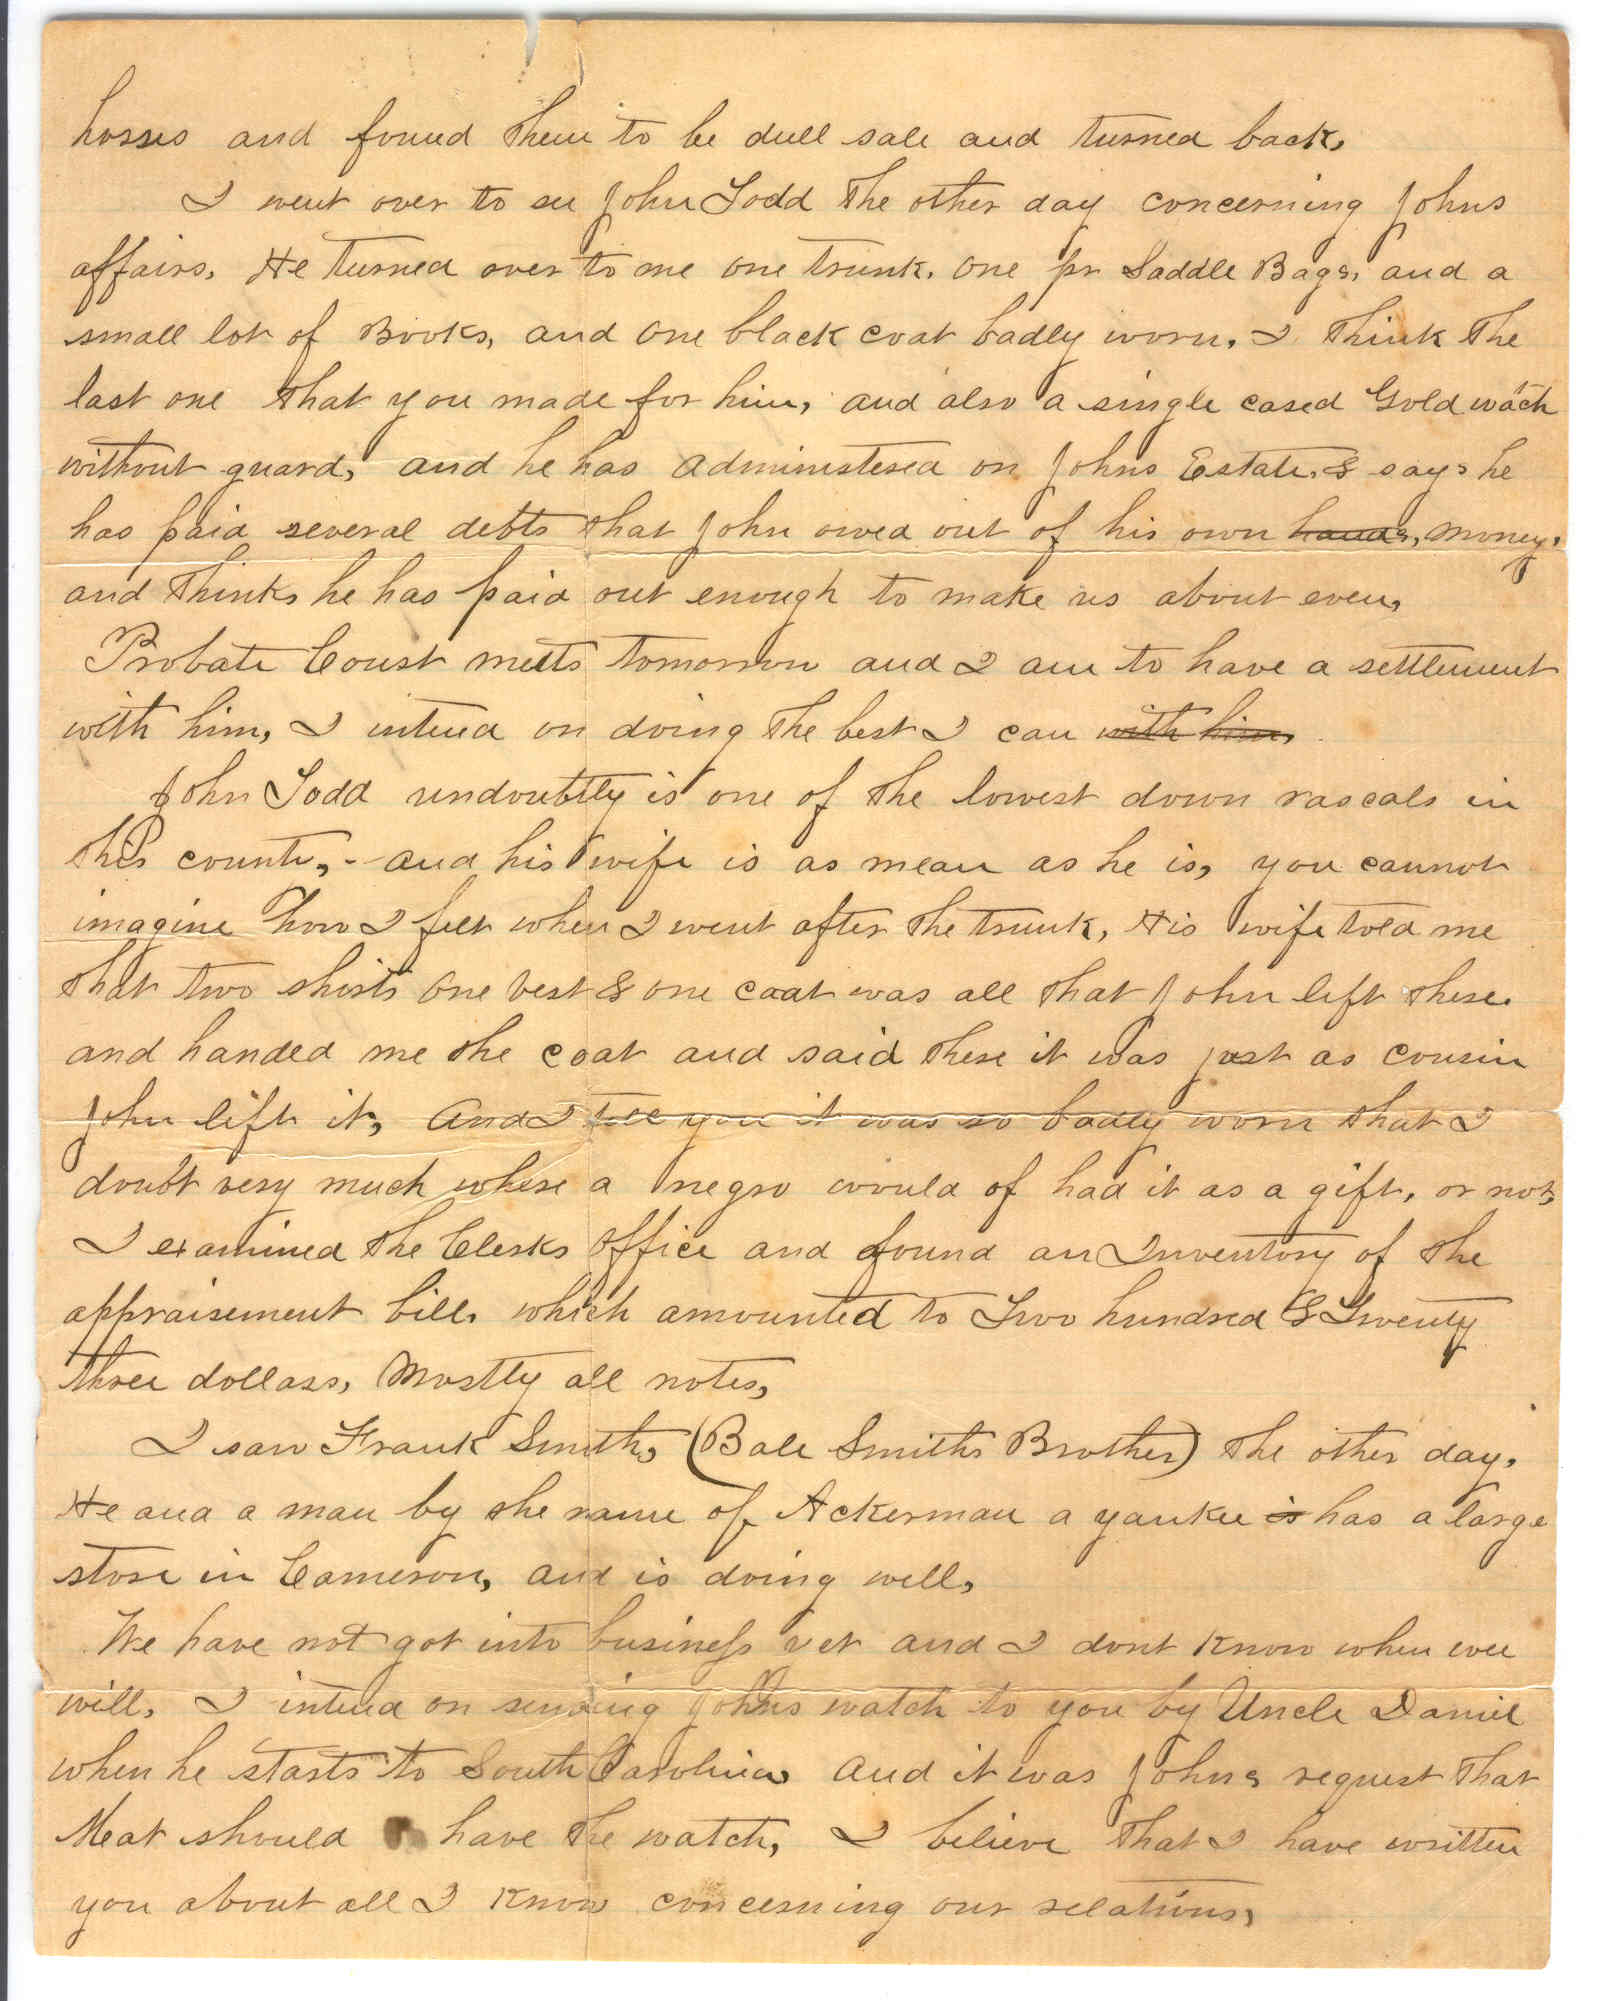 hosses and found them to be dull sale and turned back,
I went over to see John Todd the other day concerning Johns
affairs, He turned over to me one trunk, one pr Saddle Bags, and a
small lot of Books, and one black coat badly worn, I think the
last one that you made for him, and also a single cased Gold watch
without guard, and he has administered on Johns Estate, & says he
has paid several debts that John owed out of his own hands, money,
and thinks he has paid out enough to make us about even,
Probate Court meets tomorrow and I am to have a settlement
with him, I intend on doing the best I can with him,
John Todd undoubtly is one of the lowest down rascals in
this county, - and his wife is as mean as he is, you cannot
imagine how I felt when I went after the trunk, His wife told me
that two shirts one vest & one coat was all that John left there.
and handed me the coat and said there it was just as cousin
John left it, And I tell you it was so badly worn that I
doubt very much where a negro would of had it as a gift, or not,
I examined the Clerks office and found an Inventory of the
appraisement bill, which amounted to Two hundred & Twenty
three dollars, Mostly all notes,
I saw Frank Smith, (Bale Smiths Brother) the other day,
He and a man by the name of Ackerman a yankee is has a large
store in Cameron, and is doing well,
We have not got into business yet and I dont know when wee
will, I intend on sending Johns watch to you by Uncle Daniel
when he starts to South Carolina, And it was Johns request that
Meat should have the watch, I believe that I have written
you about all I know concerning our relations,